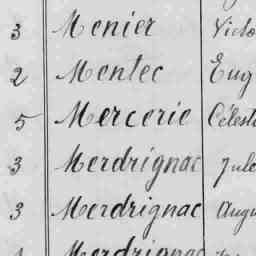 3 Menier
2 Mentec Eug
5 Mercerie Célest
3 Merdrignac Jule
3 Merdrignac Augu
Merdrignac